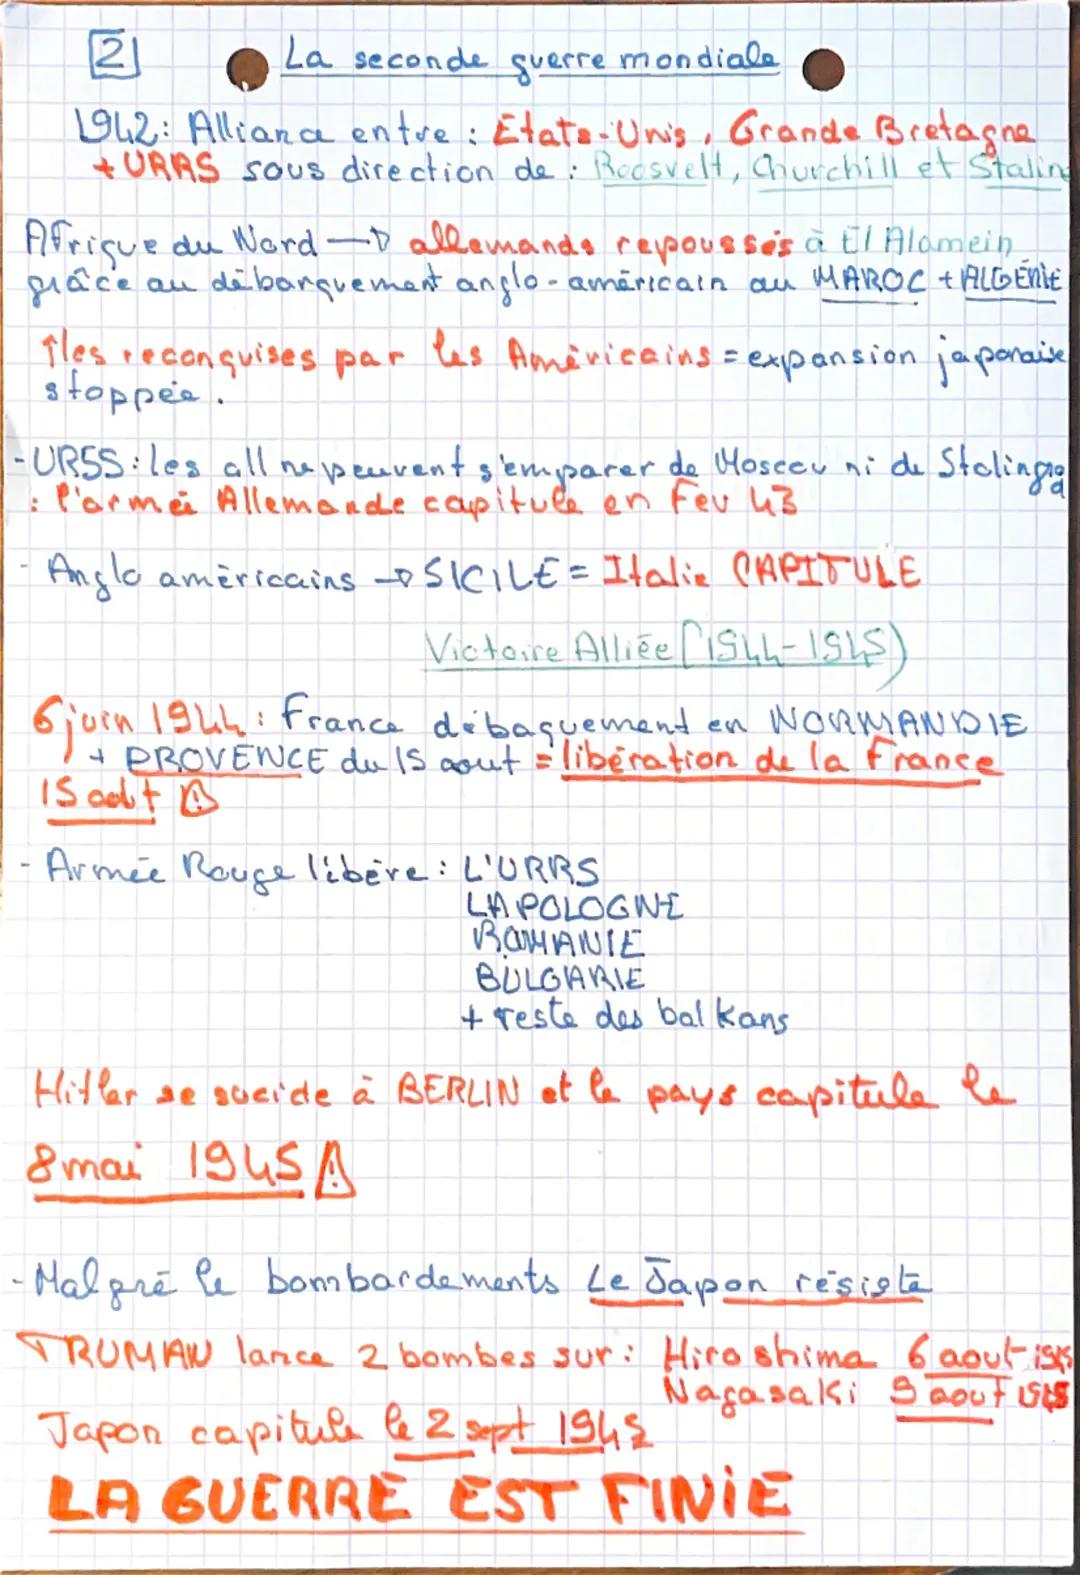 2 La seconde guerre mondiale
1942: Alliance entre : États-Unis, Grande Bretagne
+ URRS sous direction de : Roosvelt, Churchill et Staline
Afrique du Nord → allemands repoussés à El Alamein
grâce au débarquement anglo-américain au MAROC + ALGÉRIE
Îles reconquises par les Américains = expansion japonaise
stoppée.
-URSS : les all ne peuvent s'emparer de Moscou ni de Stalingrad
: l'armée Allemande capitule en Fev 43
- Anglo américains → SICILE = Italie CAPITULE
Victoire Alliée (1944-1945)
6 juin 1944 : France débaquement en NORMANDIE
+ PROVENCE du 15 aout = libération de la France
15 août ⚠
- Armée Rouge libère : L'URRS
LA POLOGNE
ROMANIE
BULGARIE
+ reste des balkans
Hitler se sucide à BERLIN et le pays capitule le
8 mai 1945 ⚠
- Malgré le bombardements Le Japon résiste
TRUMAN lance 2 bombes sur : Hiroshima 6 aout 1945
Nagasaki 9 aout 1945
Japon capitule le 2 sept 1945
LA GUERRE EST FINIE